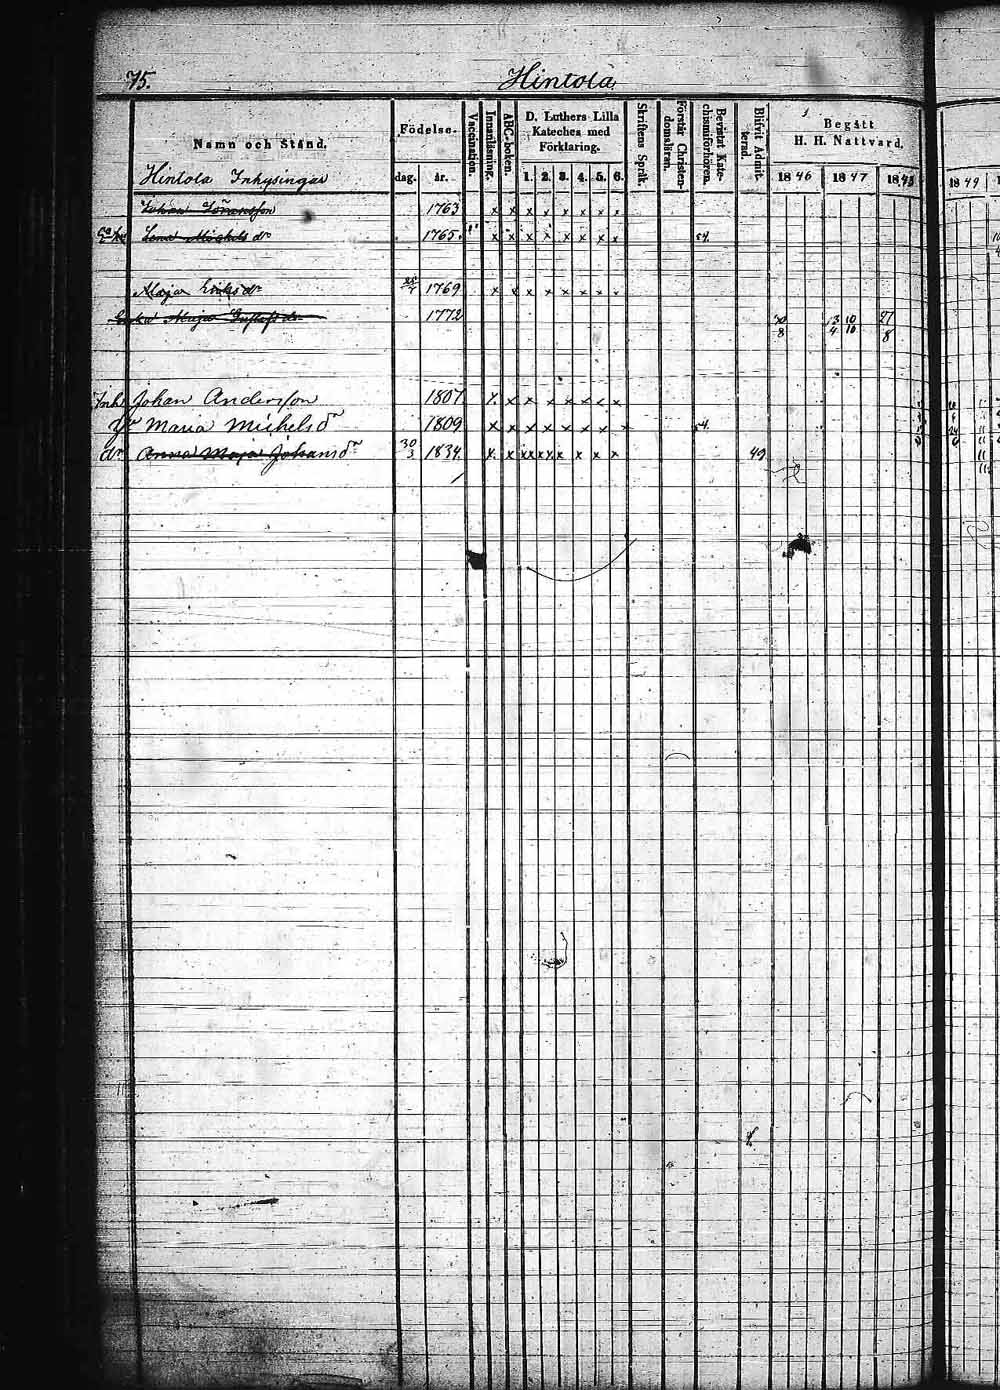 75.
Hintola
Namn och Stånd.
Födelse-
dag. år.
Vaccination.
Innanläsning.
ABC-boken.
D. Luthers Lilla
Kateches med
Förklaring.
1. 2. 3. 4. 5. 6.
Skriftens Språk.
Förstår Christen-
domsläran.
Bevistat Kate-
chismiförhören.
Blifvit Admit-
terad.
Begått
H. H. Nattvard.
1846 1847 1848
1849
Hintola Inhysingar
Johan 1763 x x x x x x x x
Lena Michels dr 1765. x x x x x x x x
Maja Eriks dr 1769 x x x x x x x x
Maja Gustafs dr 1772 30/8 13/4 10/10 27/8
Inh Johan Andersson 1807 x x x x x x x x
Maria Michels dr 1809 x x x x x x x x
dr Anna Maja Johans dr 30/3 1834. x x xx xx x x x x 49